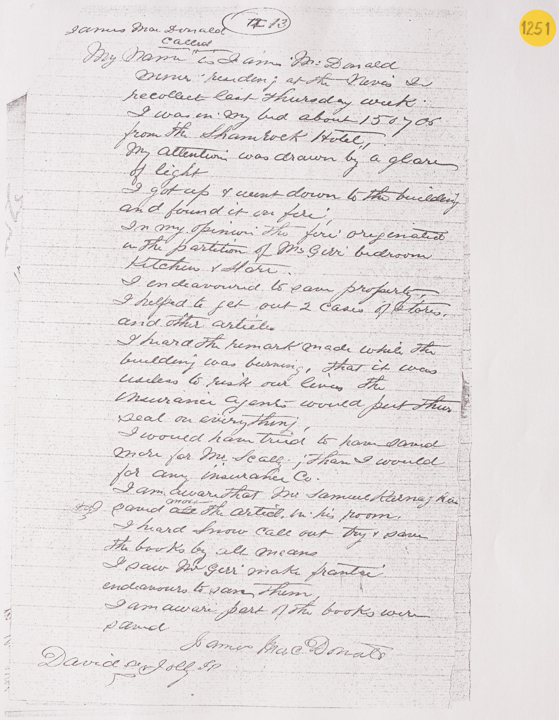 1251
13
James MacDonald
called
My Name is James McDonald
Miner residing at the Nevis I
recollect last Thursday week.
I was in my bed about 150 yds
from the Shamrock Hotel,
My attention was drawn by a glare
of light
I got up & went down to the building
and found it on fire,
In my opinion the fire originated
in the partition of Mr Gerr bedroom
Kitchen & Store.
I endeavoured to save property,
I helped to get out 2 cases of stores,
and other articles
I heard the remark made while the
building was burning, that it was
useless to risk our lives the
insurance agents would put their
seal on everything,
I would have tried to have saved
more for Mr. Scally, than I would
for any insurance Co.
I am aware that Mr Samuel
saved all most the articles in his room.
I heard Snow call out try & save
the books by all means
I saw Mr Gerr make frantic
endeavours to save them,
I am aware part of the books were
saved
James MacDonald
David Jolly JP